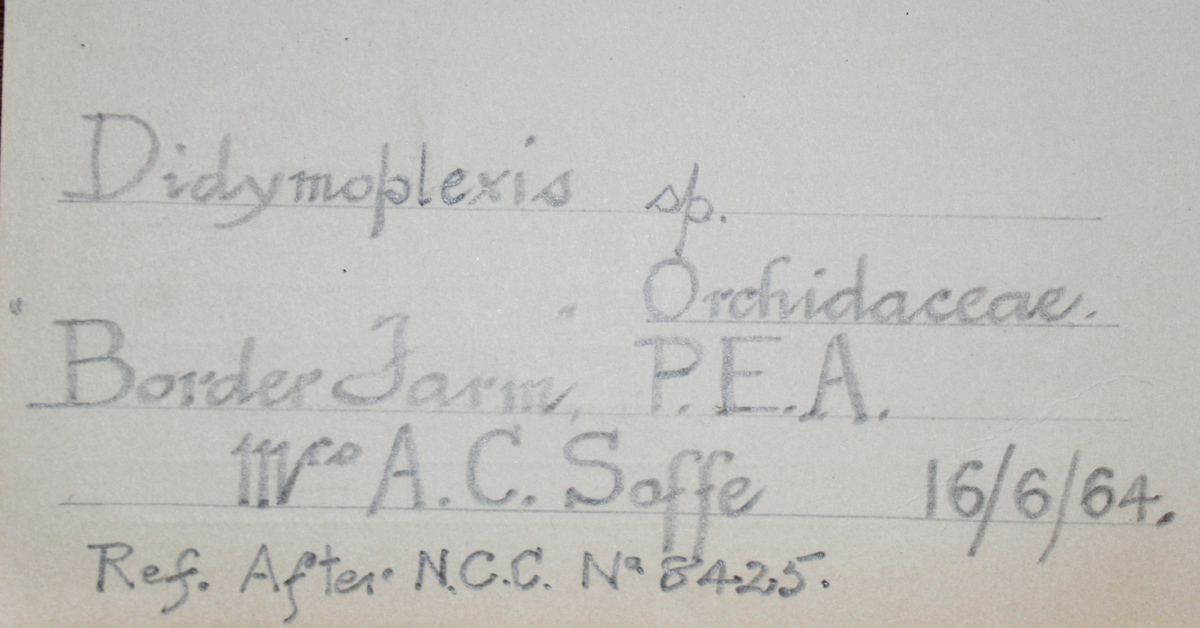 Didymoplexis sp.
Orchidaceae.
"Border Farm," P.E.A.
Mrs A.C. Soffe 16/6/64.
Ref. After N.C.C. No 8425.